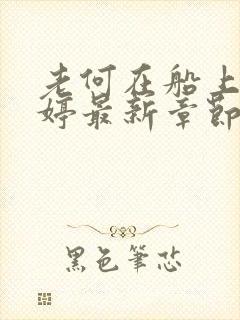 老何在船上
婷最新章節
黑色筆芯